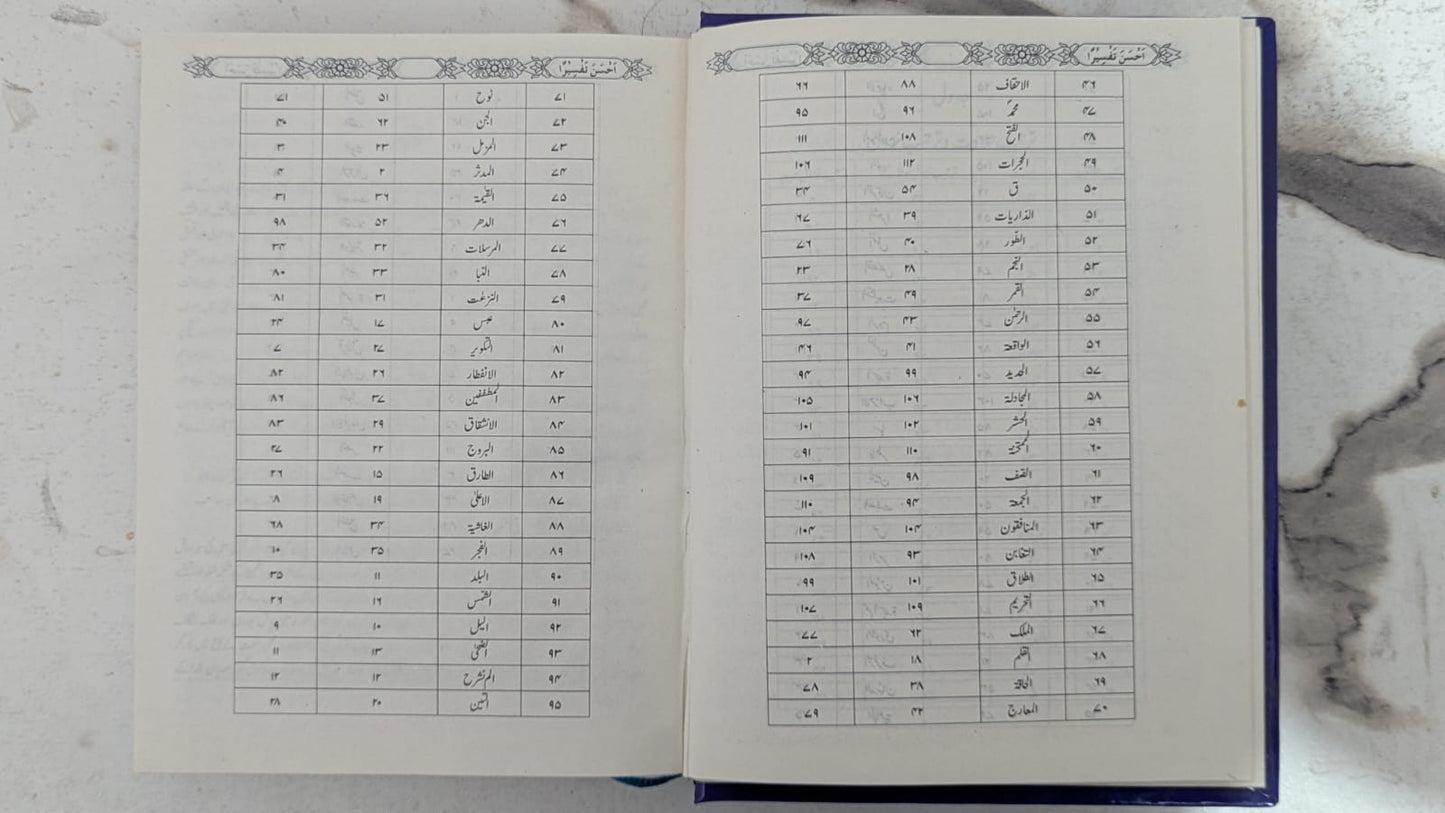 اَحْسَنَ تَفْسِیْرًا
۴۶ الاحقاف ۸۸ ۶۶
۴۷ محمدؐ ۹۶ ۹۵
۴۸ الفتح ۱۰۸ ۱۱۱
۴۹ الحجرات ۱۱۲ ۱۰۶
۵۰ ق ۵۴ ۳۴
۵۱ الذاریات ۳۹ ۶۷
۵۲ الطّور ۴۰ ۷۶
۵۳ النجم ۲۸ ۲۳
۵۴ القمر ۴۹ ۳۷
۵۵ الرحمٰن ۴۳ ۹۷
۵۶ الواقعۃ ۴۱ ۴۶
۵۷ الحدید ۹۹ ۹۴
۵۸ المجادلۃ ۱۰۶ ۱۰۵
۵۹ الحشر ۱۰۲ ۱۰۱
۶۰ الممتحنۃ ۱۱۰ ۹۱
۶۱ الصّف ۹۸ ۱۰۹
۶۲ الجمعۃ ۹۴ ۱۱۰
۶۳ المنافقون ۱۰۴ ۱۰۴
۶۴ التغابن ۹۳ ۱۰۸
۶۵ الطلاق ۱۰۱ ۹۹
۶۶ التحریم ۱۰۹ ۱۰۷
۶۷ الملک ۶۲ ۷۷
۶۸ القلم ۱۸ ۲
۶۹ الحاقۃ ۳۸ ۷۸
۷۰ المعارج ۴۲ ۷۹
اَحْسَنَ تَفْسِیْرًا
۷۱ نوح ۵۱ ۷۱
۷۲ الجن ۶۲ ۴۰
۷۳ المزمل ۲۳ ۳
۷۴ المدثر ۲ ۴
۷۵ القیمۃ ۳۶ ۳۱
۷۶ الدھر ۵۲ ۹۸
۷۷ المرسلات ۳۲ ۳۴
۷۸ النبا ۳۳ ۸۰
۷۹ النزعٰت ۳۱ ۸۱
۸۰ عبس ۱۷ ۲۴
۸۱ التکویر ۲۷ ۷
۸۲ الانفطار ۲۶ ۸۲
۸۳ المطففین ۳۷ ۸۶
۸۴ الانشقاق ۲۹ ۸۳
۸۵ البروج ۲۲ ۲۷
۸۶ الطارق ۱۵ ۳۶
۸۷ الاعلیٰ ۱۹ ۸
۸۸ الغاشیۃ ۳۴ ۶۸
۸۹ الفجر ۳۵ ۱۰
۹۰ البلد ۱۱ ۳۵
۹۱ الشمس ۱۶ ۲۶
۹۲ الیل ۱۰ ۹
۹۳ الضحیٰ ۱۳ ۱۱
۹۴ الم نشرح ۱۲ ۱۲
۹۵ التین ۲۰ ۲۸